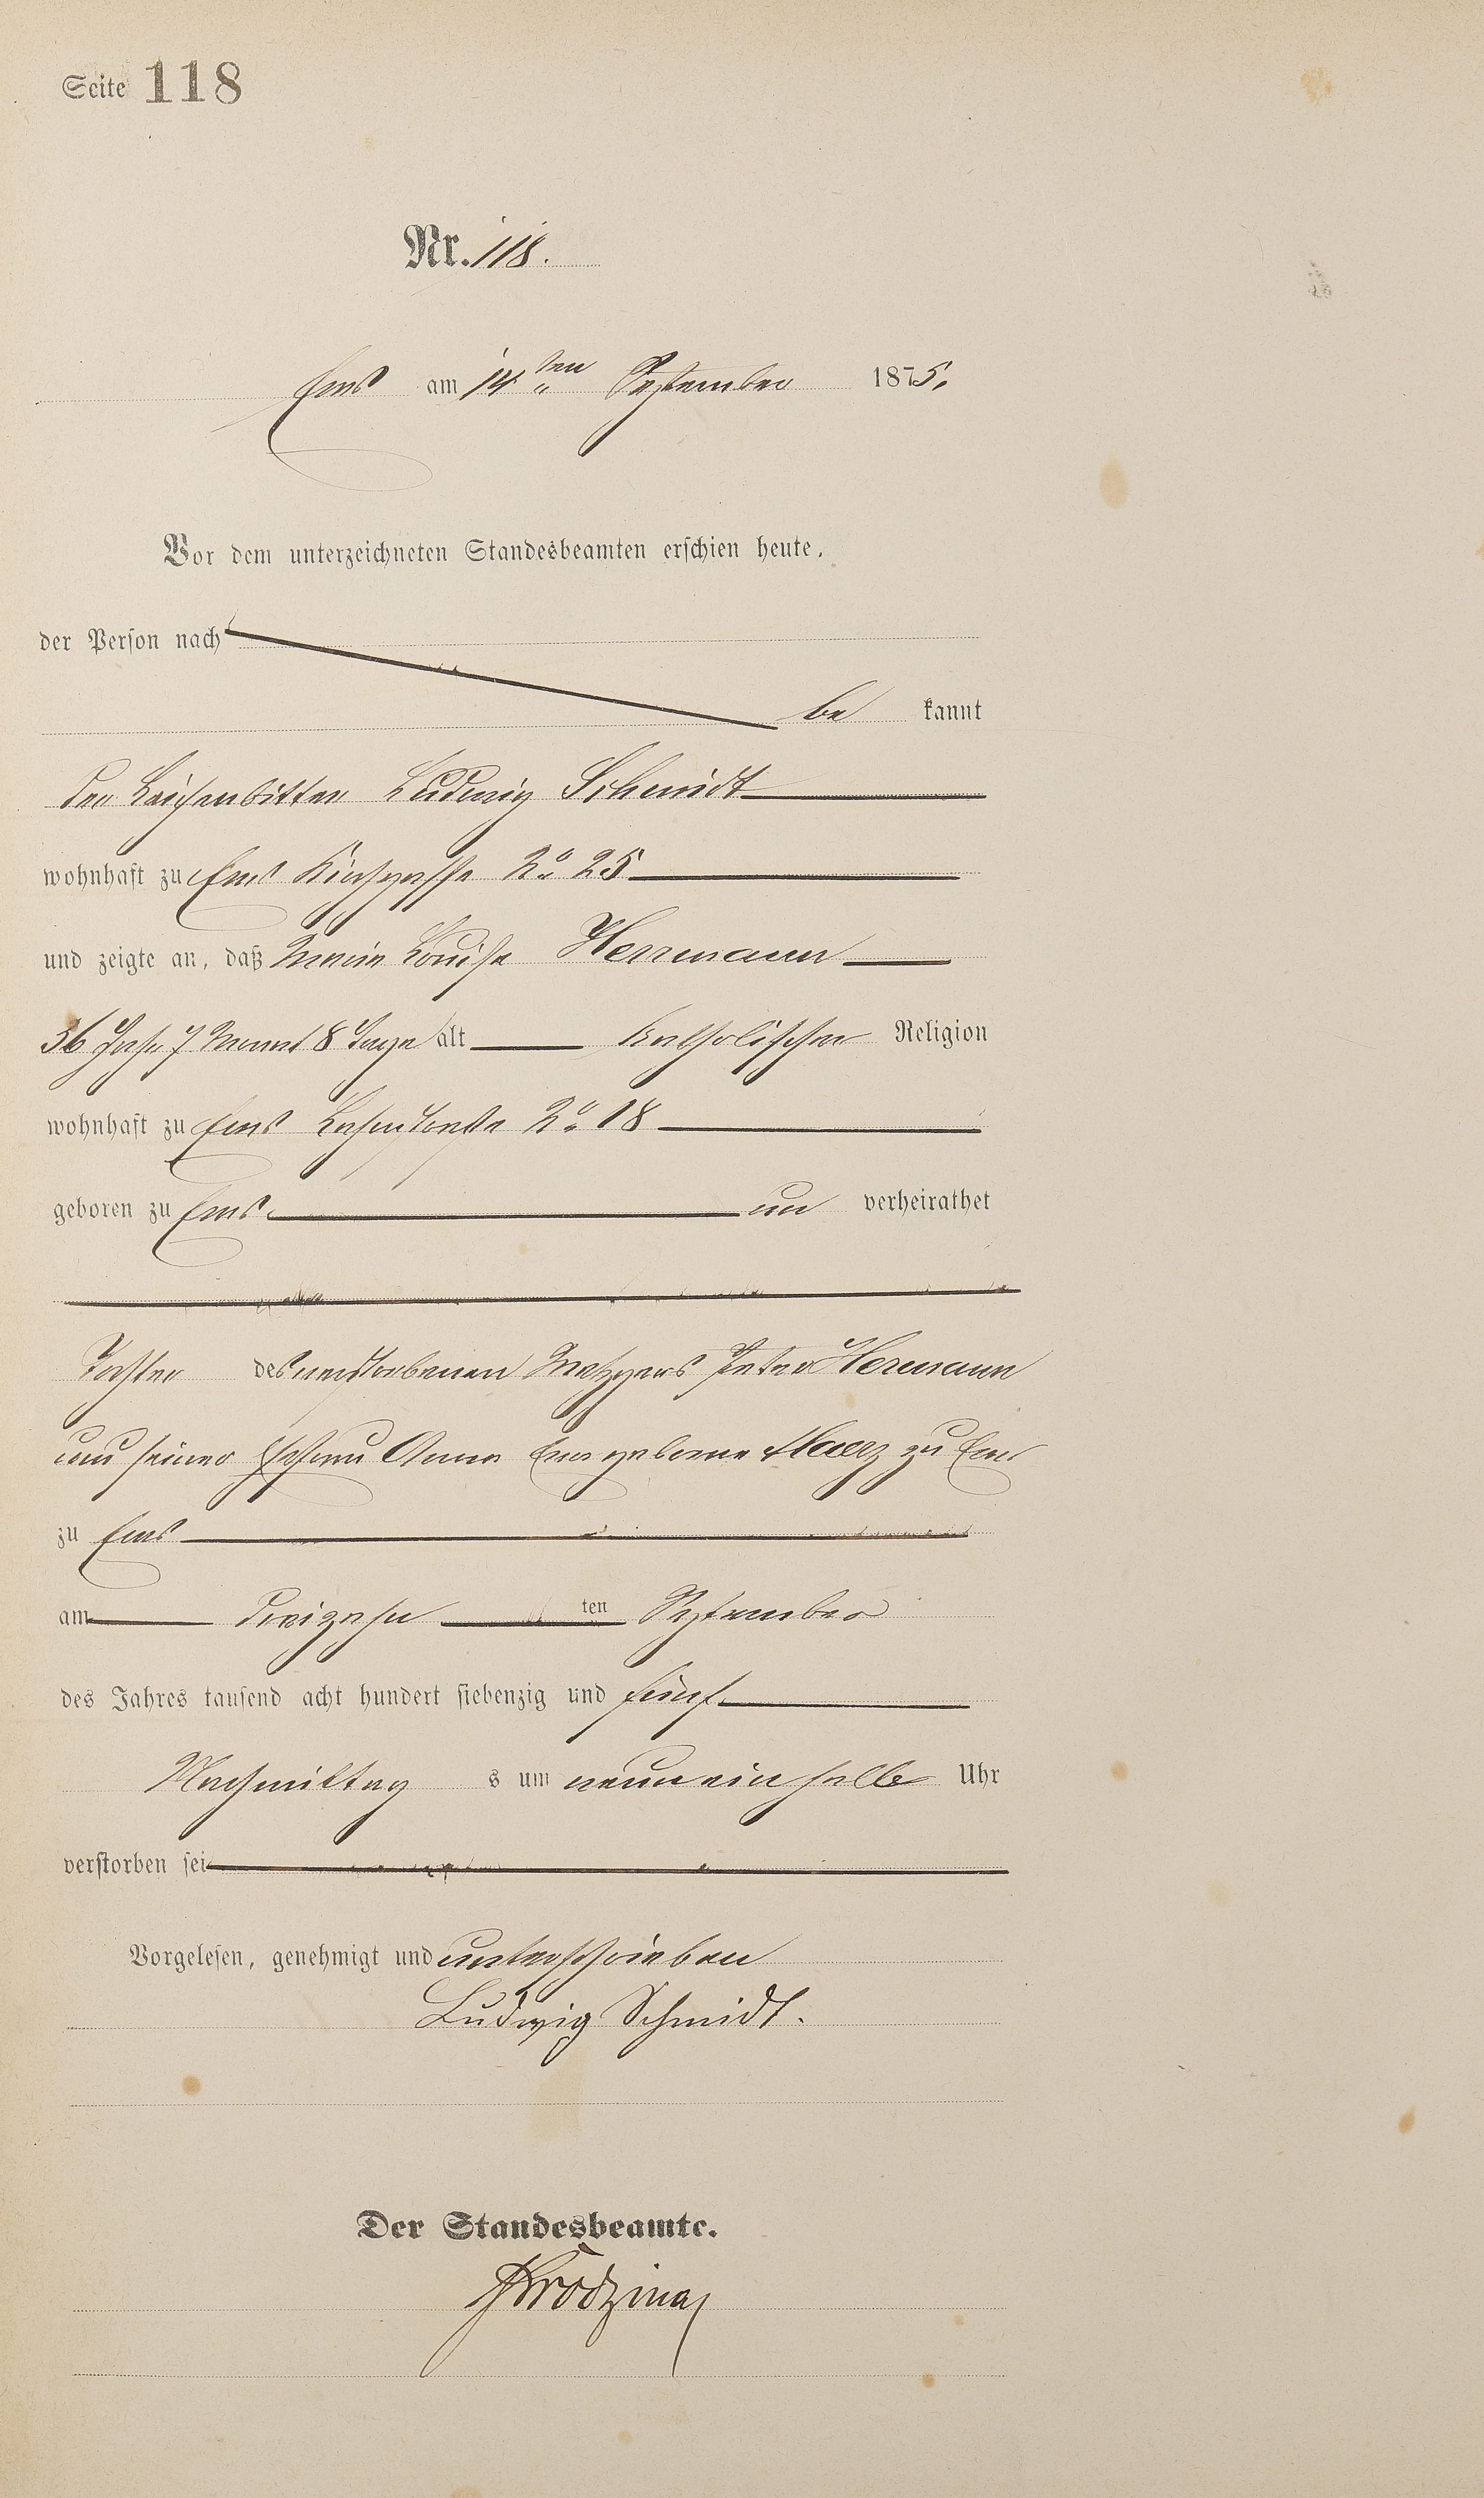 Seite 118
Nr. 118.
Ems am 14ten September 1875.
Vor dem unterzeichneten Standesbeamten erschien heute,
der Person nach
be kannt
der Leichenbitter Ludwig Schmidt
wohnhaft zu Ems Kirchgasse No 25
und zeigte an, daß Maria Louise Herrmann
36 Jahr 7 Monat 8 Tage alt Katholischer Religion
wohnhaft zu Ems No 18
geboren zu Ems un verheirathet
Tochter des verstorbenen Metzgers Peter Hermann
und seiner Ehefrau Anna geborne zu Ems
zu Ems
am Dreizehn ten September
des Jahres tausend acht hundert siebenzig und fünf
Nachmittag s um neun ein halb Uhr
verstorben sei
Vorgelesen, genehmigt und unterschrieben
Ludwig Schmidt.
Der Standesbeamte.